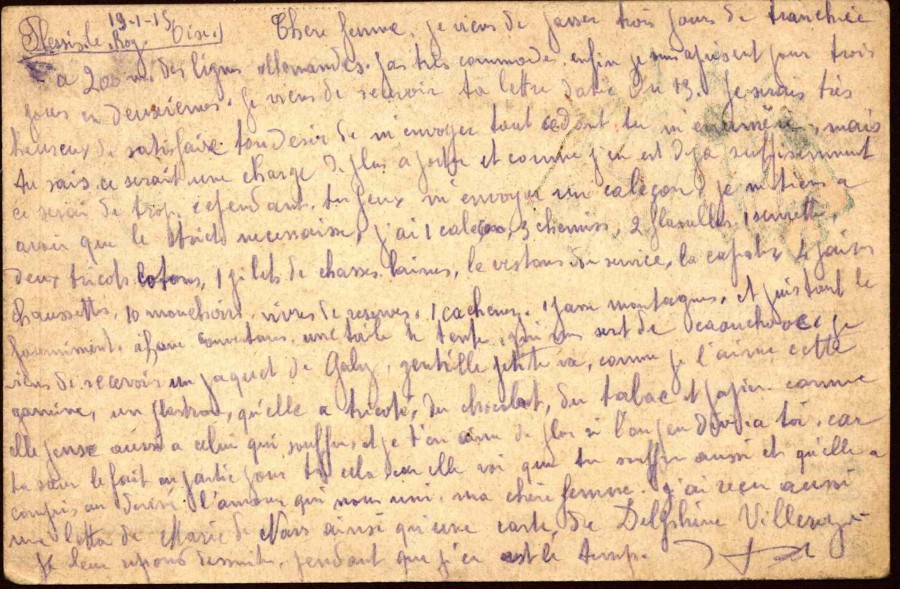 19-1-15
Plessis le Roy Oise Chere femme, je viens de passer trois jours de tranchée
a 200 m. des lignes allemandes. pas très commode, enfin je suis apresent pour trois
jours en deuxièmes. Je viens de recevoir ta lettre datée du 13. Je serais très
heureux de satisfaire ton desir de m'envoyer tout ce dont tu m'enumère, mais
tu sais ce serait une charge de plus a porter et comme j'en est deja suffisemment
ce serai de trop. cependant tu peux m'envoyer un caleçon, je m tiens a
avoir que le strict necessaire, j'ai 1 caleçon, 3 chemises, 2 flanelles, 1 serviette,
deux tricots cotons, 1 gilets de chasses laines, le vestons de service, la capote, 4 paires
chaussettes, 10 mouchoirs, vivres de reserves, 1 cachenez, montagnes, et puis tout le
fourniment. couvertures, une toile de tente, qui sert de caouchouc. je
viens de recevoir un paquet de Gaby, gentille petite va, comme je l'aime cette
gamine, un plastron, qu'elle a tricoté, du chocolat, du tabac et papier. comme
elle pense aussi a celui qui souffre, et je t'en aime de plus car
tu sais le fait en partie pour cela, car elle voi que tu souffre aussi et qu'elle a
compris l'amour qui nous uni, ma chère femme. j'ai reçu aussi
une lettre de Marie de ainsi qu'une carte de Delphine
Je leur repond desuite, pendant que j'en est le temp.